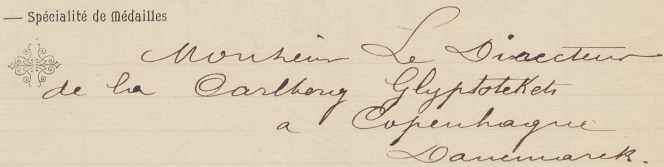 — Spécialité de Médailles
Monsieur Le Directeur
de la Carlberg Glyptotekets
a Copenhague
Danemarck.